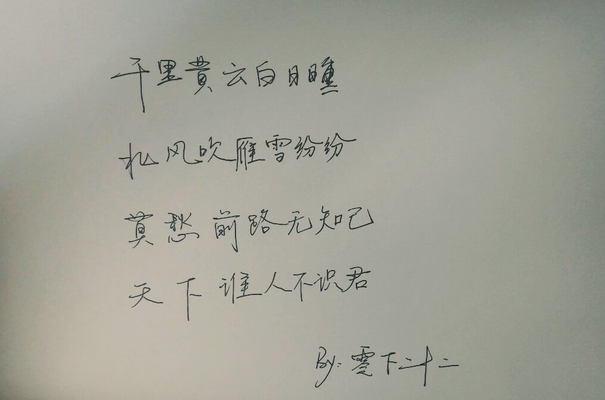 千里黄云白日曛
北风吹雁雪纷纷
莫愁前路无知己
天下谁人不识君
By: 零下二十二